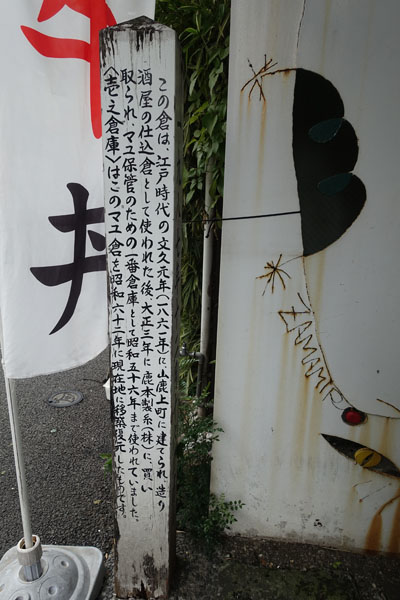 この倉は、江戸時代の文久元年(一八六一年)に山鹿上町に建てられ、造り
酒屋の仕込倉として使われた後、大正三年に鹿本製糸(株)に、買い
取られ、マユ保管のための一番倉庫として昭和五十六年まで使われていました。
〈壱之倉庫〉はこのマユ倉を昭和六十二年に現在地に移築復元したものです。
丼